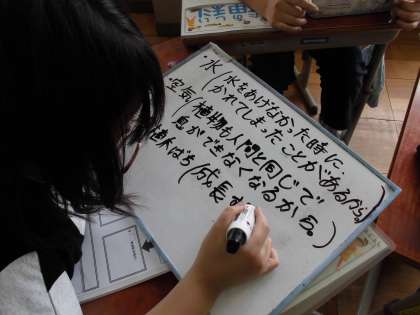 ・水(水をあげなかった時に
かれてしまったことがあるから。)
・空気(植物も人間と同じで
息ができなくなるから。)
植木ばち(成長